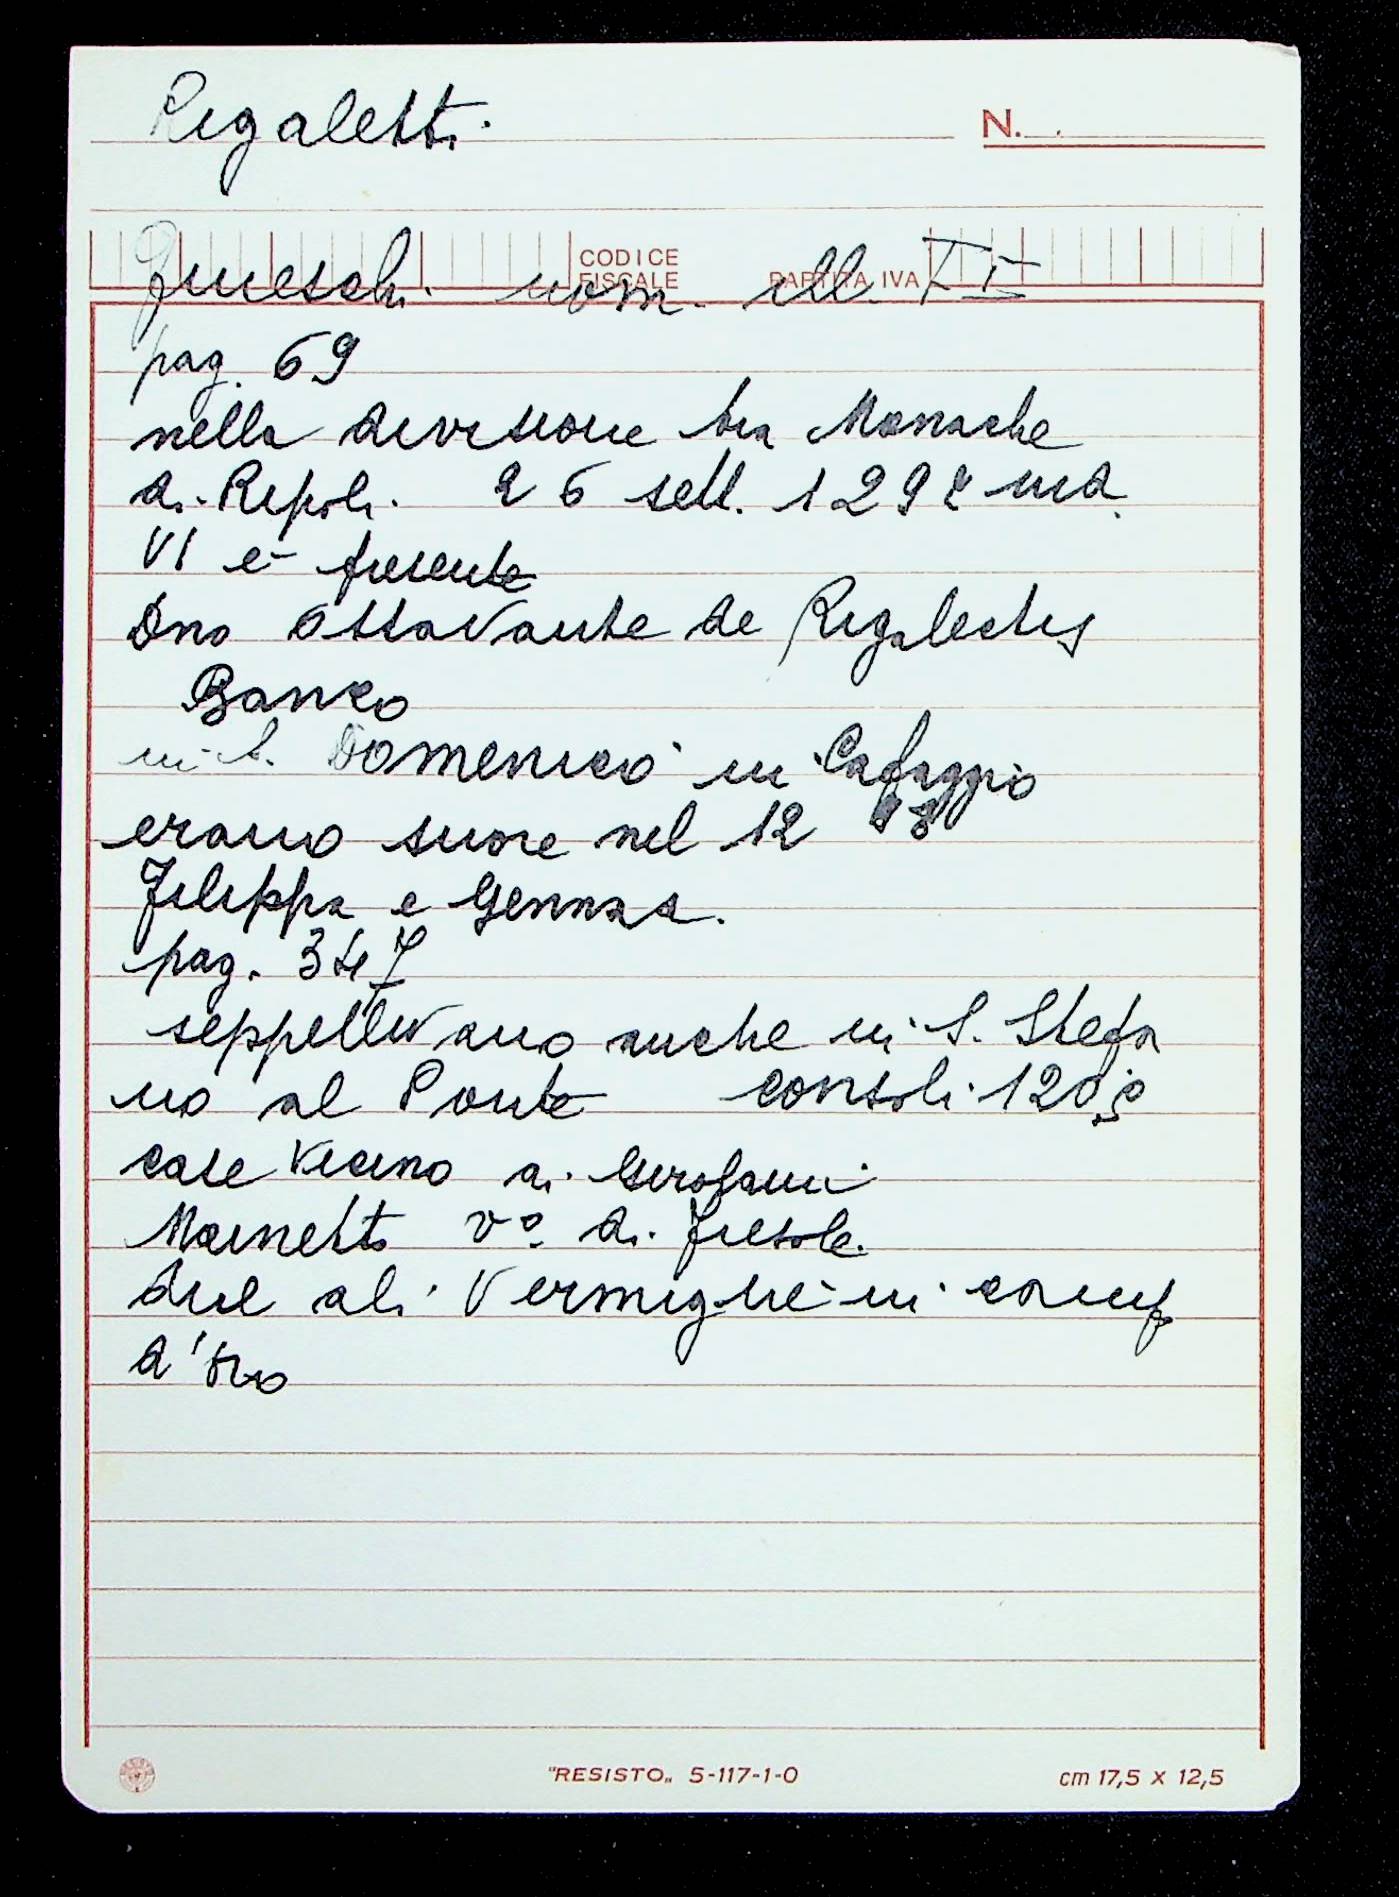 Rigaletti
N.
CODICE
FISCALE
PARTITA IVA
Fineschi nom. ill. II
pag. 69
nella divisione tra Monache
di Ripoli 26 sett. 129 ind.
VI è presente
Dno Ottavante de Rigalectis
Banco
in S. Domenico in Cafaggio
erano suore nel 12
Filippa e Gemma.
pag. 347
seppellivano anche in S. Stefa
no al Ponte consoli 120
case vicino ai Girolami
Mainetto v° di Fiesole.
due ali vermiglie in camp
d'oro
"RESISTO„ 5-117-1-0
cm 17,5 x 12,5